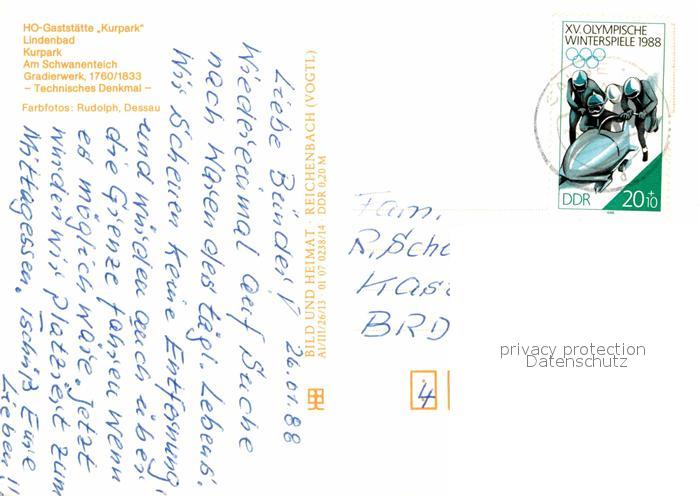 HO-Gaststätte „Kurpark"
Lindenbad
Kurpark
Am Schwanenteich
Gradierwerk, 1760/1833
– Technisches Denkmal –
Farbfotos: Rudolph, Dessau
26.01.88
Liebe Bündel!
Wiedereinmal auf Suche
nach Waren des tägl. Lebens.
Wir scheuen keine Entfernung
und würden auch über
die Grenze fahren wenn
es möglich wäre. Jetzt
würden wir Platzreit zum
Mittagessen. Tschüß Eure
Lieben!!
BILD UND HEIMAT · REICHENBACH (VOGTL)
A1/III/26/13 01 07 0238/14 DDR 0,20 M
XV. OLYMPISCHE
WINTERSPIELE 1988
DDR 20+10
Fam.
R. Sche
Kas
BRD
4
privacy protection
Datenschutz